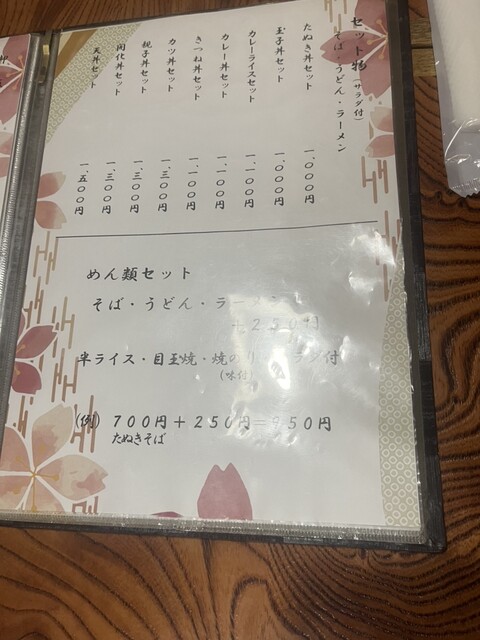 セット物（サラダ付）
そば・うどん・ラーメン
たぬき丼セット 一、〇〇〇円
玉子丼セット 一、〇〇〇円
カレーライスセット 一、一〇〇円
カレー丼セット 一、一〇〇円
きつね丼セット 一、一〇〇円
カツ丼セット 一、三〇〇円
親子丼セット 一、三〇〇円
開化丼セット 一、三〇〇円
天丼セット 一、五〇〇円
めん類セット
そば・うどん・ラーメン
＋２５０円
半ライス・目玉焼・焼のり ラダ付
（味付）
（例）７００円＋２５０円＝９５０円
たぬきそば